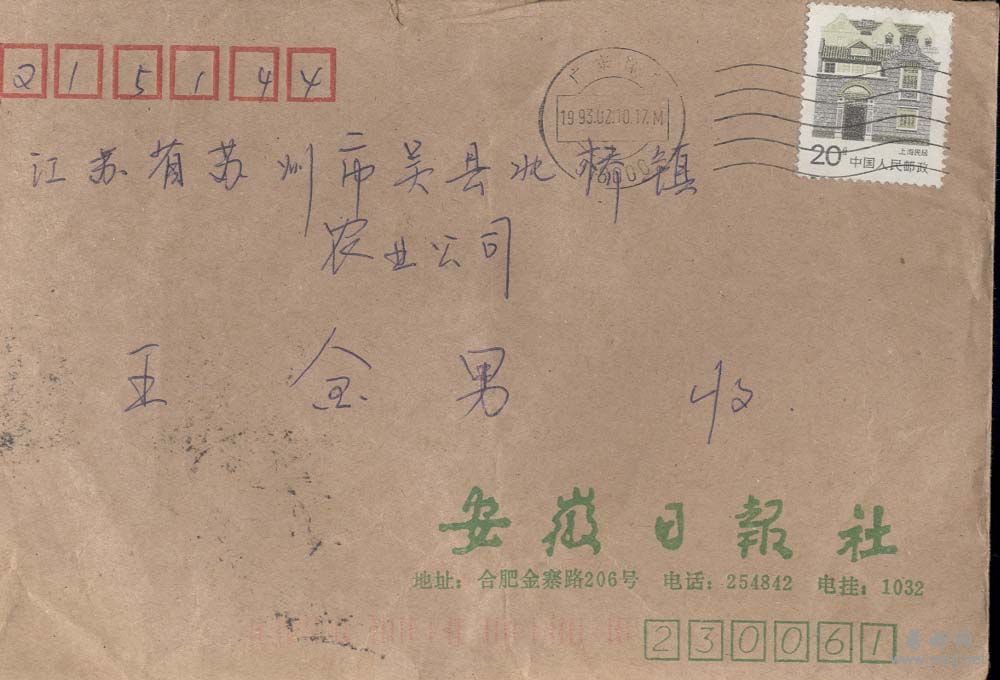 215144
1993.02.10.17.M
上海民居
20分 中国人民邮政
江苏省苏州市吴县北桥镇
农业公司
王金男 收
安徽日報社
地址：合肥金寨路206号 电话：254842 电挂：1032
230061